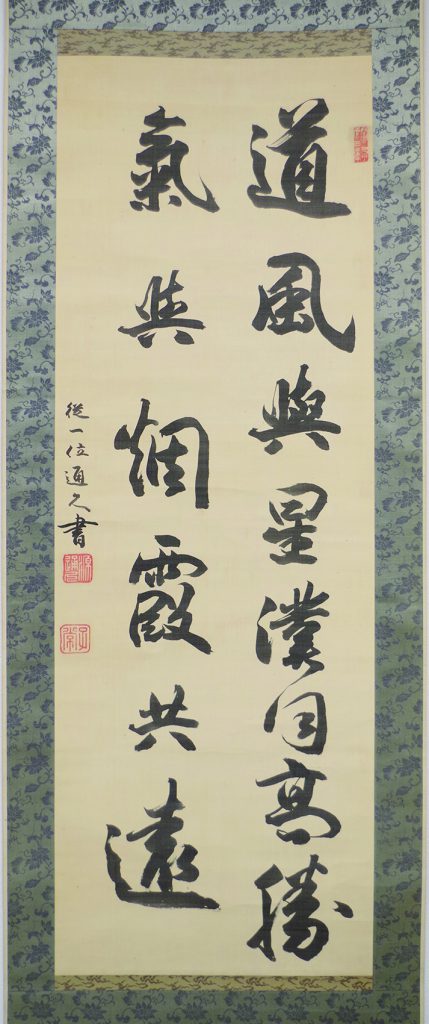 道風與星漢同高勝
氣與烟霞共遠
從一位通久書